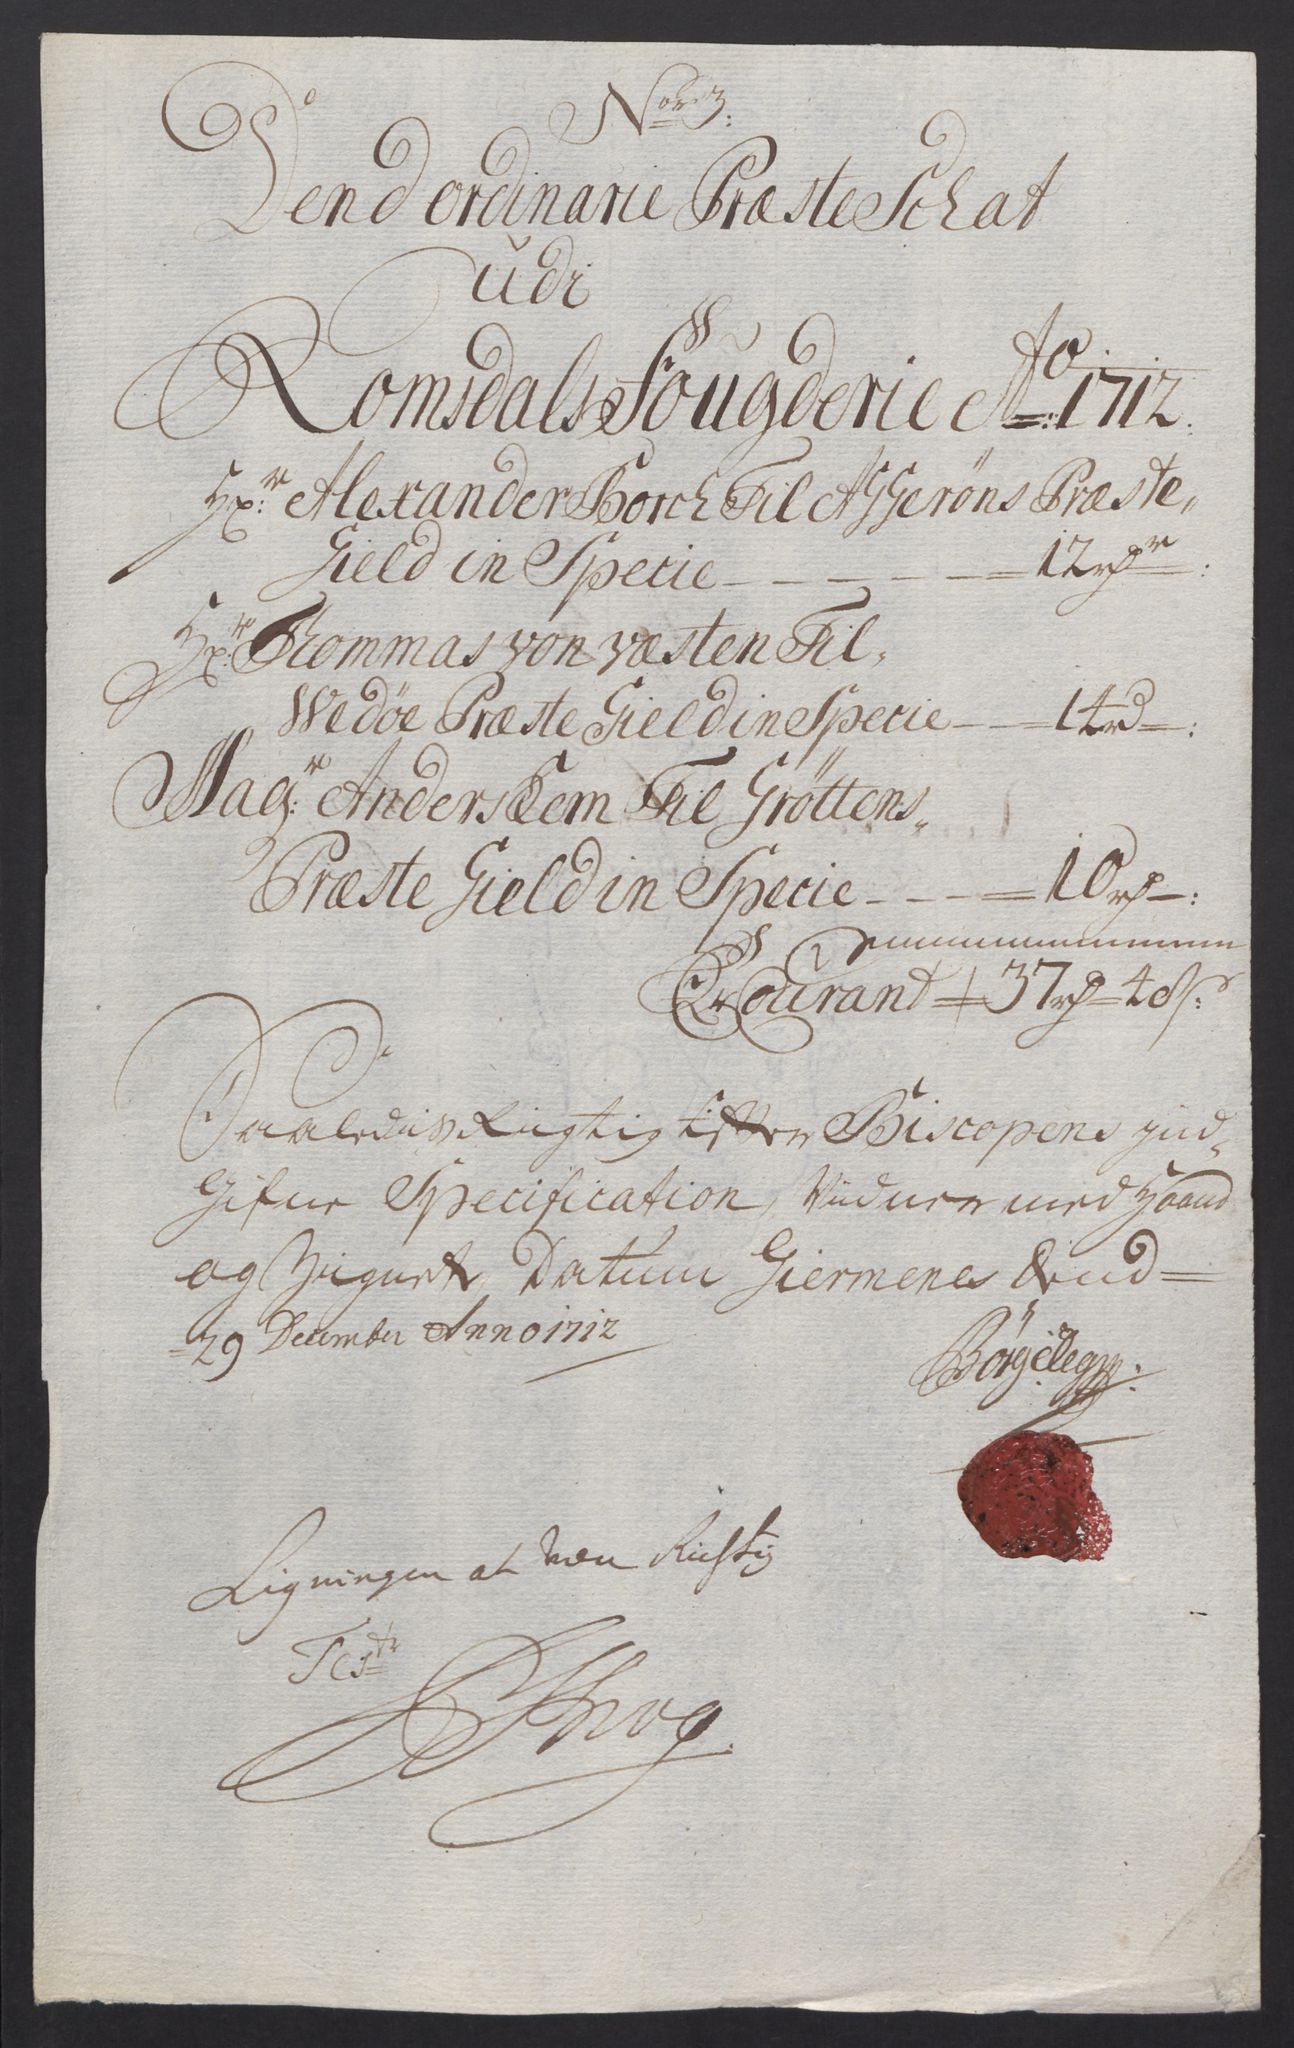 No. 3.
Dend ordinarie Præste Schat
Udi
Romsdals Fougderie Ao: 1712.
Hr: Alexander Borch Til Aggerøns Præste
Gield in Specie — 12 rdr:
Hr: Thommas von væsten Til
Wedøe Præste Gield in Specie — 14 rd:
Magr: Anders Lem Til Grøttens
Præste Gield in Specie — 10 rd:
Er Courant — 37 rd 48 s:
Saaledis Rigtig Efter Biscopens ind
Gifne Specification, Vidner med Haand
og Zignete, Datum Giermenes dend
29 December Anno 1712
Ligningen at være Rigtig
Test: